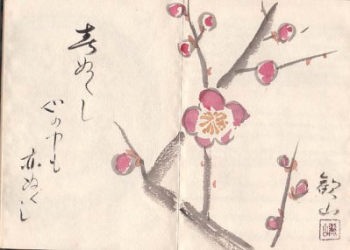 春ぬくし
心の中も
亦ぬくし